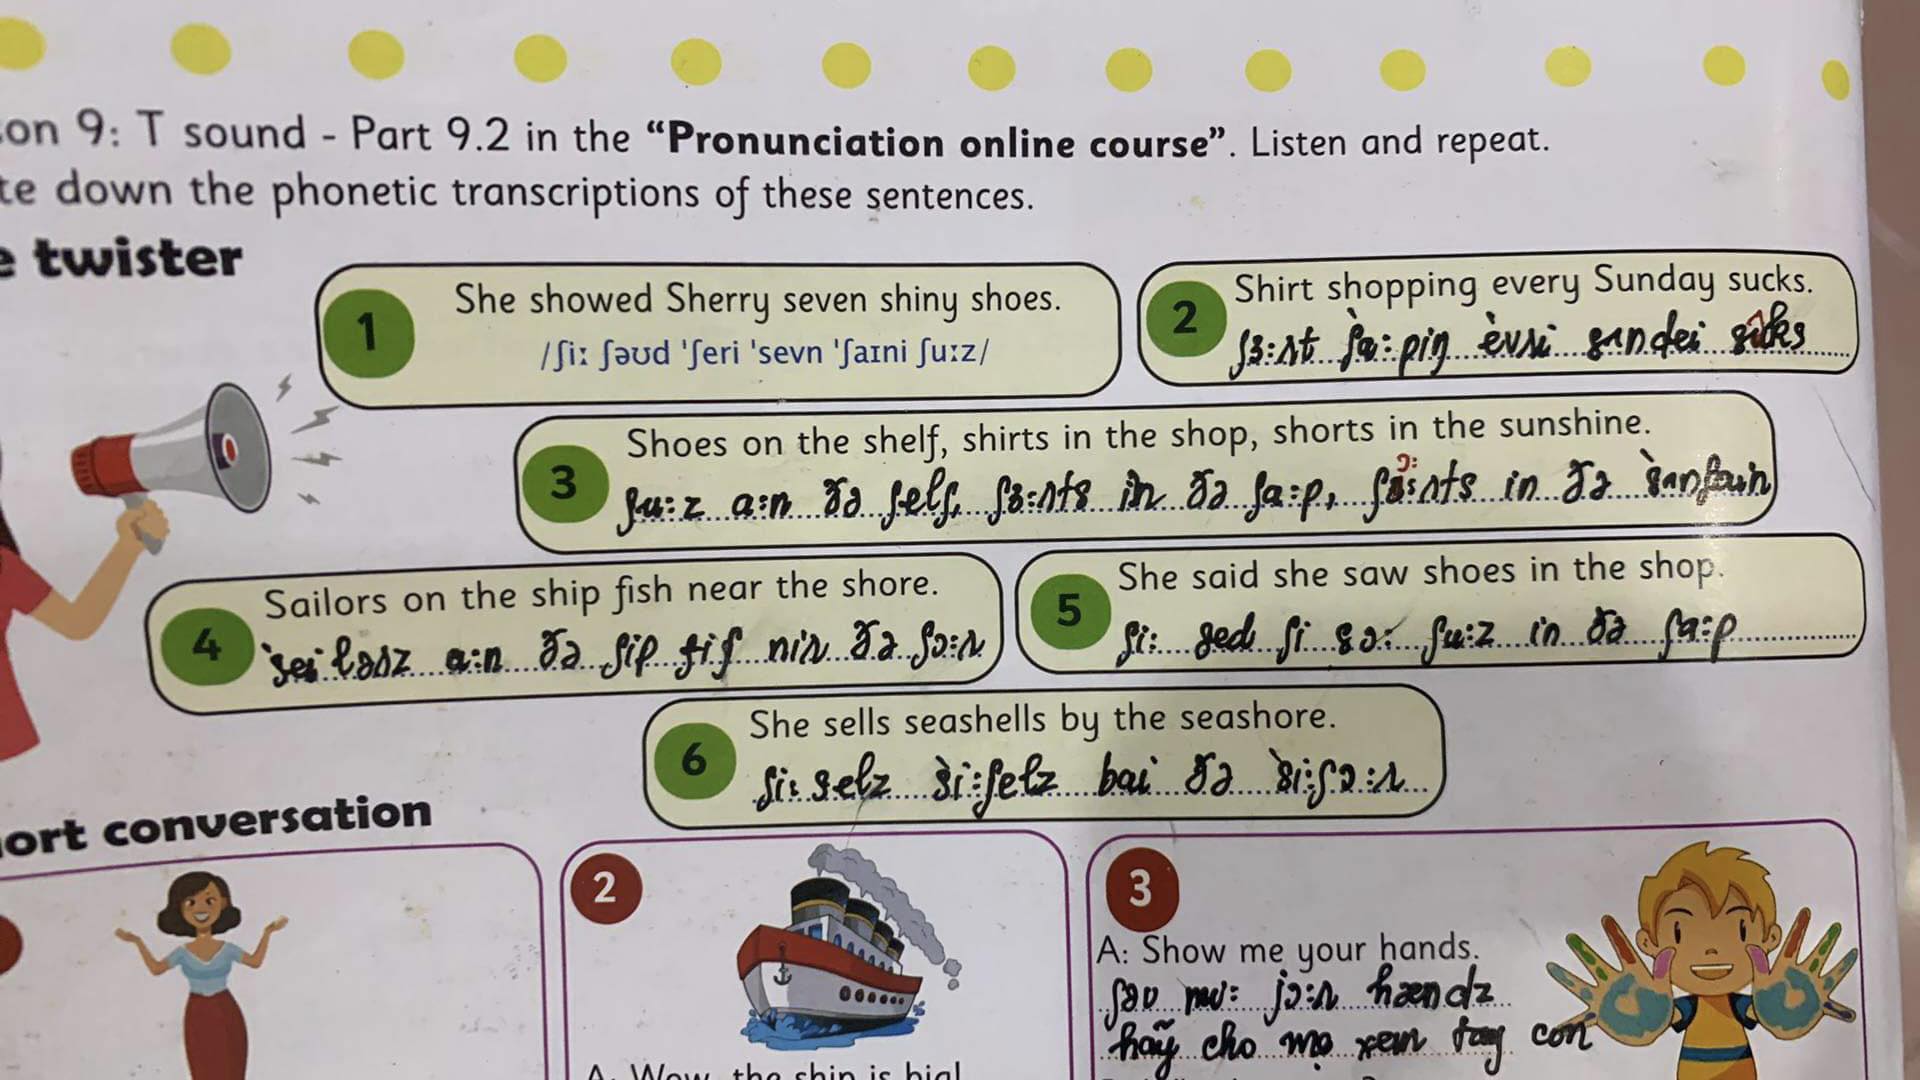 on 9: T sound - Part 9.2 in the “Pronunciation online course”. Listen and repeat.
te down the phonetic transcriptions of these sentences.
e twister
1 She showed Sherry seven shiny shoes.
/ʃiː ʃəʊd 'ʃeri 'sevn 'ʃaɪni ʃuːz/
2 Shirt shopping every Sunday sucks.
ʃɜ:rt ʃa:piŋ evri sʌndei sʌks
3 Shoes on the shelf, shirts in the shop, shorts in the sunshine.
ʃu:z a:n ðə ʃelf, ʃɜ:rts in ðə ʃa:p, ʃɔ:rts in ðə 'sʌnʃain
4 Sailors on the ship fish near the shore.
'seilərz a:n ðə ʃip fiʃ nir ðə ʃɔ:r
5 She said she saw shoes in the shop.
ʃi: sed ʃi sɔ: ʃu:z in ðə ʃa:p
6 She sells seashells by the seashore.
ʃi: selz 'si:ʃelz bai ðə 'si:ʃɔ:r
ort conversation
2
A: Wow, the ship is big!
3
A: Show me your hands.
ʃəʊ mi: jɔ:r hændz
hãy cho mẹ xem tay con